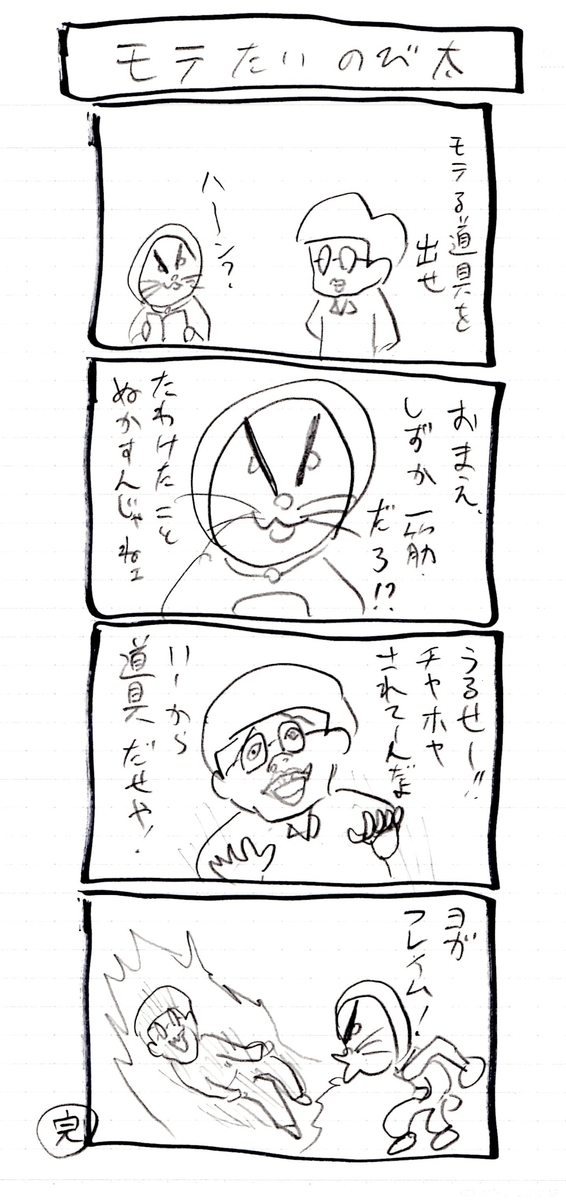 モテたいのび太
モテる道具を
出せ
ハーン?
おまえ、
しずか一筋
だろ!?
たわけたこと
ぬかすんじゃねェ
うるせー!!
チヤホヤ
されてーんだよ
いーから
道具だせや!
ヨガ
フレイム!
完